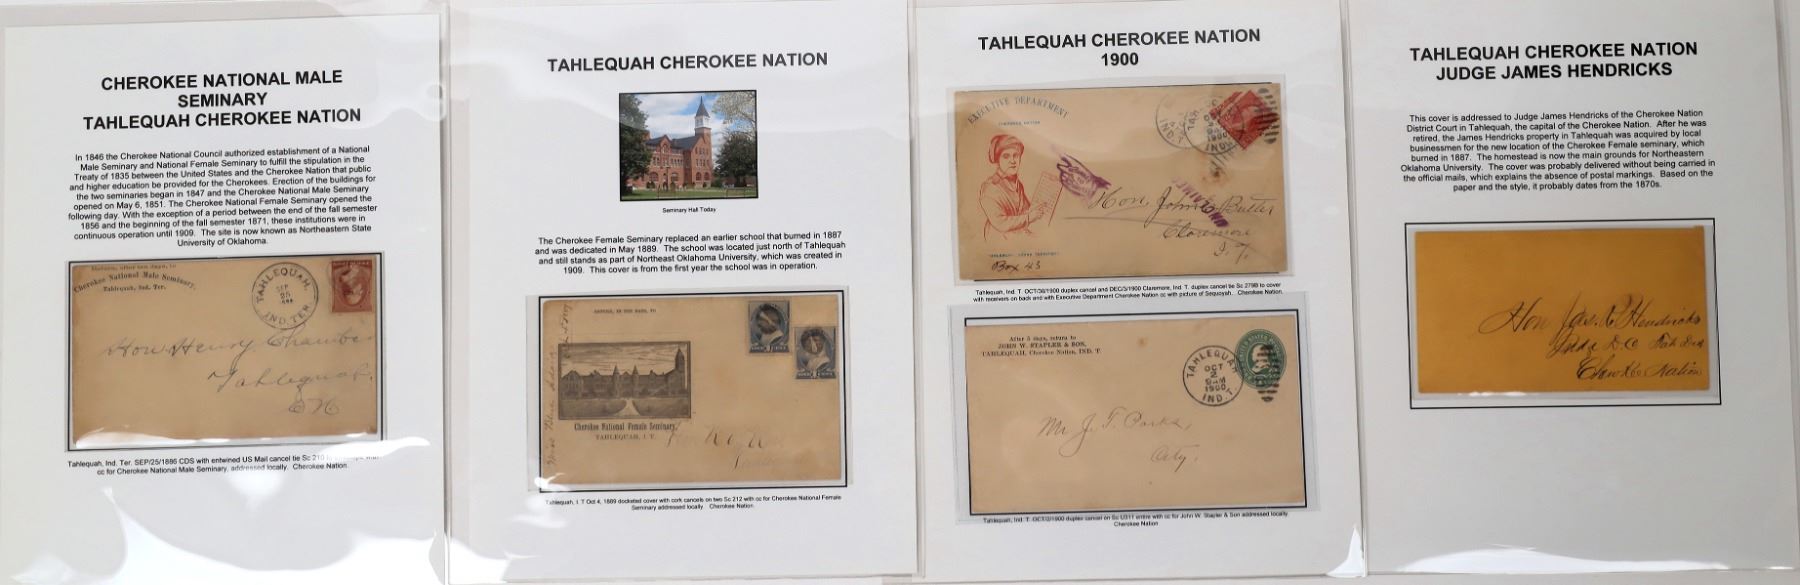 CHEROKEE NATIONAL MALE
SEMINARY
TAHLEQUAH CHEROKEE NATION
In 1846 the Cherokee National Council authorized establishment of a National
Male Seminary and National Female Seminary to fulfill the stipulation in the
Treaty of 1835 between the United States and the Cherokee Nation that public
and higher education be provided for the Cherokees. Erection of the buildings for
the two seminaries began in 1847 and the Cherokee National Male Seminary
opened on May 6, 1851. The Cherokee National Female Seminary opened the
following day. With the exception of a period between the end of the fall semester
1856 and the beginning of the fall semester 1871, these institutions were in
continuous operation until 1909. The site is now known as Northeastern State
University of Oklahoma.
Return, after ten days, to
Cherokee National Male Seminary,
Tahlequah, Ind. Ter.
TAHLEQUAH,
SEP
25
IND. TER.
Hon. Henry Chambers
Tahlequah,
C N
Tahlequah, Ind. Ter. SEP/25/1886 CDS with entwined US Mail cancel tie Sc 210 to
cc for Cherokee National Male Seminary, addressed locally. Cherokee Nation
TAHLEQUAH CHEROKEE NATION
Seminary Hall Today
The Cherokee Female Seminary replaced an earlier school that burned in 1887
and was dedicated in May 1889. The school was located just north of Tahlequah
and still stands as part of Northeast Oklahoma University, which was created in
1909. This cover is from the first year the school was in operation.
RETURN, IN TEN DAYS, TO
Cherokee National Female Seminary,
TAHLEQUAH, I. T.
Tahlequah, I. T Oct 4, 1889 docketed cover with cork cancels on two Sc 212 with cc for Cherokee National Female
Seminary addressed locally. Cherokee Nation.
TAHLEQUAH CHEROKEE NATION
1900
EXECUTIVE DEPARTMENT
CHEROKEE NATION
TAHLEQUAH
1900
IND. T.
Hon John E Butler
Claremore
I. T.
Box 43
Tahlequah, Ind. T. OCT/30/1900 duplex cancel and DEC/3/1900 Claremore, Ind. T. duplex cancel tie Sc 279B to cover
with receivers on back and with Executive Department Cherokee Nation cc with picture of Sequoyah. Cherokee Nation.
After 5 days, return to
JOHN W. STAPLER & SON,
TAHLEQUAH, Cherokee Nation, IND. T.
TAHLEQUAH
OCT
2
9AM
1900
IND. T.
Mr J. T. Parks,
City.
Tahlequah, Ind. T. OCT/2/1900 duplex cancel on Sc U311 entire with cc for John W. Stapler & Son addressed locally.
Cherokee Nation
TAHLEQUAH CHEROKEE NATION
JUDGE JAMES HENDRICKS
This cover is addressed to Judge James Hendricks of the Cherokee Nation
District Court in Tahlequah, the capital of the Cherokee Nation. After he was
retired, the James Hendricks property in Tahlequah was acquired by local
businessmen for the new location of the Cherokee Female seminary, which
burned in 1887. The homestead is now the main grounds for Northeastern
Oklahoma University. The cover was probably delivered without being carried in
the official mails, which explains the absence of postal markings. Based on the
paper and the style, it probably dates from the 1870s.
Hon Jas. R Hendricks
Judge D. C.
Cherokee Nation